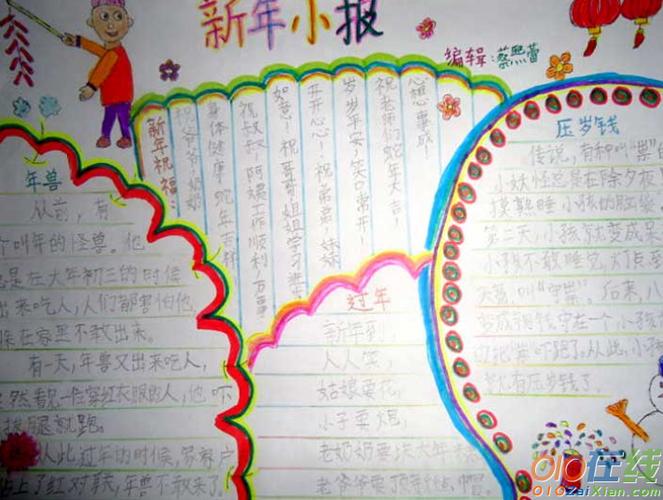 新年小报
编辑:蔡熙蕾
新年祝福:
祝爷爷、奶奶
身体健康 蛇年吉祥
祝叔叔、阿姨工作顺利万事
如意！祝哥哥、姐姐学习进步
开开心心！祝弟弟、妹妹
岁岁平安、笑口常开！
祝老师们蛇年大吉！
心想事成！
年兽
从前，有
个叫年的怪兽。他
总是在大年初三的时候
出来吃人，人们都害怕他，
躲在家里不敢出来。
有一天，年兽又出来吃人，
突然看见一位穿红衣服的人，他吓
拔腿就跑。
从此过年的时候，家家户
贴上了红对联，年兽不敢来了。
过年
新年到，
人人笑，
姑娘要花，
小子要炮，
老奶奶要块大年糕
老爷爷要顶新毡帽
压岁钱
传说，有种叫“祟”的
小妖怪总是在除夕夜
摸熟睡小孩的脑袋
第二天，小孩就变成呆
小孩不敢睡觉，灯点至
天亮，叫“守祟”。后来，八
变成铜钱守在一个小孩
把“祟”吓跑了。从此，小孩
就有压岁钱了。
olo在线
OlOZaiXian.com